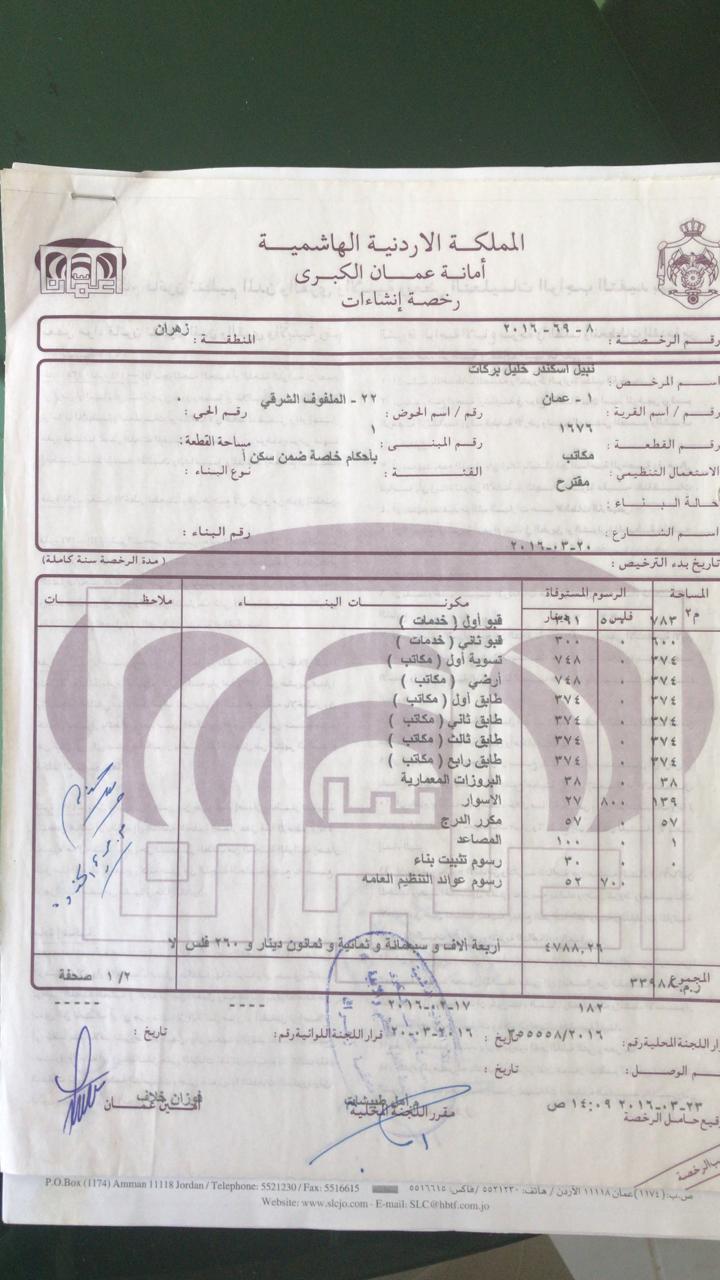 المملكة الاردنية الهاشمية
أمانة عمان الكبرى
رخصة إنشاءات
رقم الرخصة : ٨ - ٦٩ - ٢٠١٦ المنطقة : زهران
اسم المرخص : نبيل اسكندر خليل بركات
رقم / اسم القرية : ١ - عمان رقم / اسم الحوض : ٢٢ - الملفوف الشرقي رقم الحي : ٠
رقم القطعة : ١٦٧٦ رقم المبنى : ١ مساحة القطعة :
الاستعمال التنظيمي : مكاتب الفئة : بأحكام خاصة ضمن سكن أ نوع البناء :
حالة البناء : مقترح
اسم الشارع : رقم البناء :
تاريخ بدء الترخيص : ٢٠-٠٣-٢٠١٦ ( مدة الرخصة سنة كاملة )
المساحة م٢ الرسوم المستوفاة فلس دينار مكونات البناء ملاحظات
٧٨٣ قبو أول ( خدمات )
٦٠٠ ٠ ٣٠٠ قبو ثاني ( خدمات )
٣٧٤ ٠ ٧٤٨ تسوية أول ( مكاتب )
٣٧٤ ٠ ٧٤٨ أرضي ( مكاتب )
٣٧٤ ٠ ٣٧٤ طابق أول ( مكاتب )
٣٧٤ ٠ ٣٧٤ طابق ثاني ( مكاتب )
٣٧٤ ٠ ٣٧٤ طابق ثالث ( مكاتب )
٣٧٤ ٠ ٣٧٤ طابق رابع ( مكاتب )
٣٨ ٠ ٣٨ البروزات المعمارية
١٣٩ ٨٠٠ ٢٧ الاسوار
٥٧ ٠ ٥٧ مكرر الدرج
١ ٠ ١٠٠ المصاعد
٠ ٠ ٣٠ رسوم تثبيت بناء
٧٠٠ ٥٢ رسوم عوائد التنظيم العامه
٤٧٨٨,٢٦ أربعة ألاف و سبعمائة و ثمانية و ثمانون دينار و ٢٦٠ فلس لا
المجموع ١/٢ صفحة
١٨٢ ١٧-٠٢-٢٠١٦ ----- -----
قرار اللجنة المحلية رقم : تاريخ : ٢٠١٦-٠٣-٢٠ قرار اللجنة اللوائية رقم : تاريخ :
رقم الوصل : تاريخ :
٢٣-٠٣-٢٠١٦ ١٤:٠٩ ص
توقيع حامل الرخصة مقرر اللجنة المحلية أمين عمان
فوزان خلاف
P.O.Box (1174) Amman 11118 Jordan / Telephone: 5521230 / Fax: 5516615 ص.ب: (١١٧٤) عمان ١١١١٨ الأردن / هاتف: ٥٥٢١٢٣٠ /فاكس: ٥٥١٦٦١٥
Website: www.slcjo.com - E-mail: SLC@hbtf.com.jo